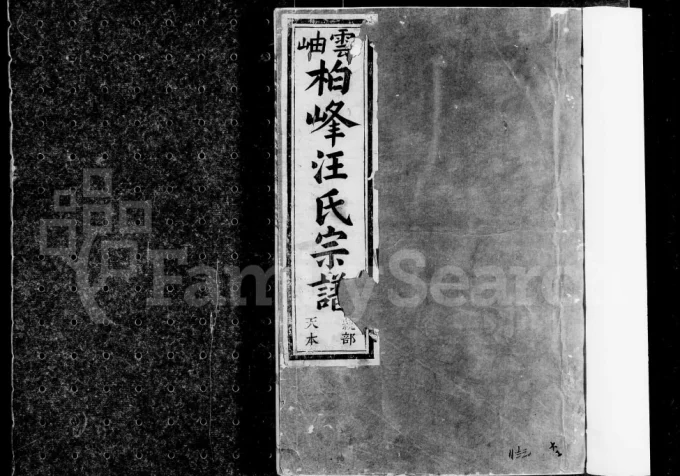 雲岫
柏峰汪氏宗譜
部
天本
FamilySearch